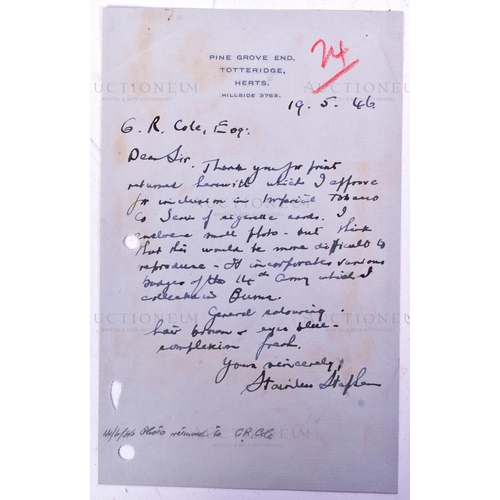 PINE GROVE END,
TOTTERIDGE,
HERTS.
HILLSIDE 3753.
24
19. 5. 46
G. R. Cole, Esq:
Dear Sir. Thank you for print
returned herewith which I approve
for inclusion in Imperial Tobacco
Co Series of cigarette cards. I
enclose a small photo - but think
that this would be more difficult to
reproduce - It incorporates various
badges of the 14th Army which I
collected in Burma.
General colouring
hair brown & eyes blue -
complexion fresh.
Yours sincerely,
Stainless Stephen
14/6/46 Photo returned to G.R. Cole
AUCTIONEUM